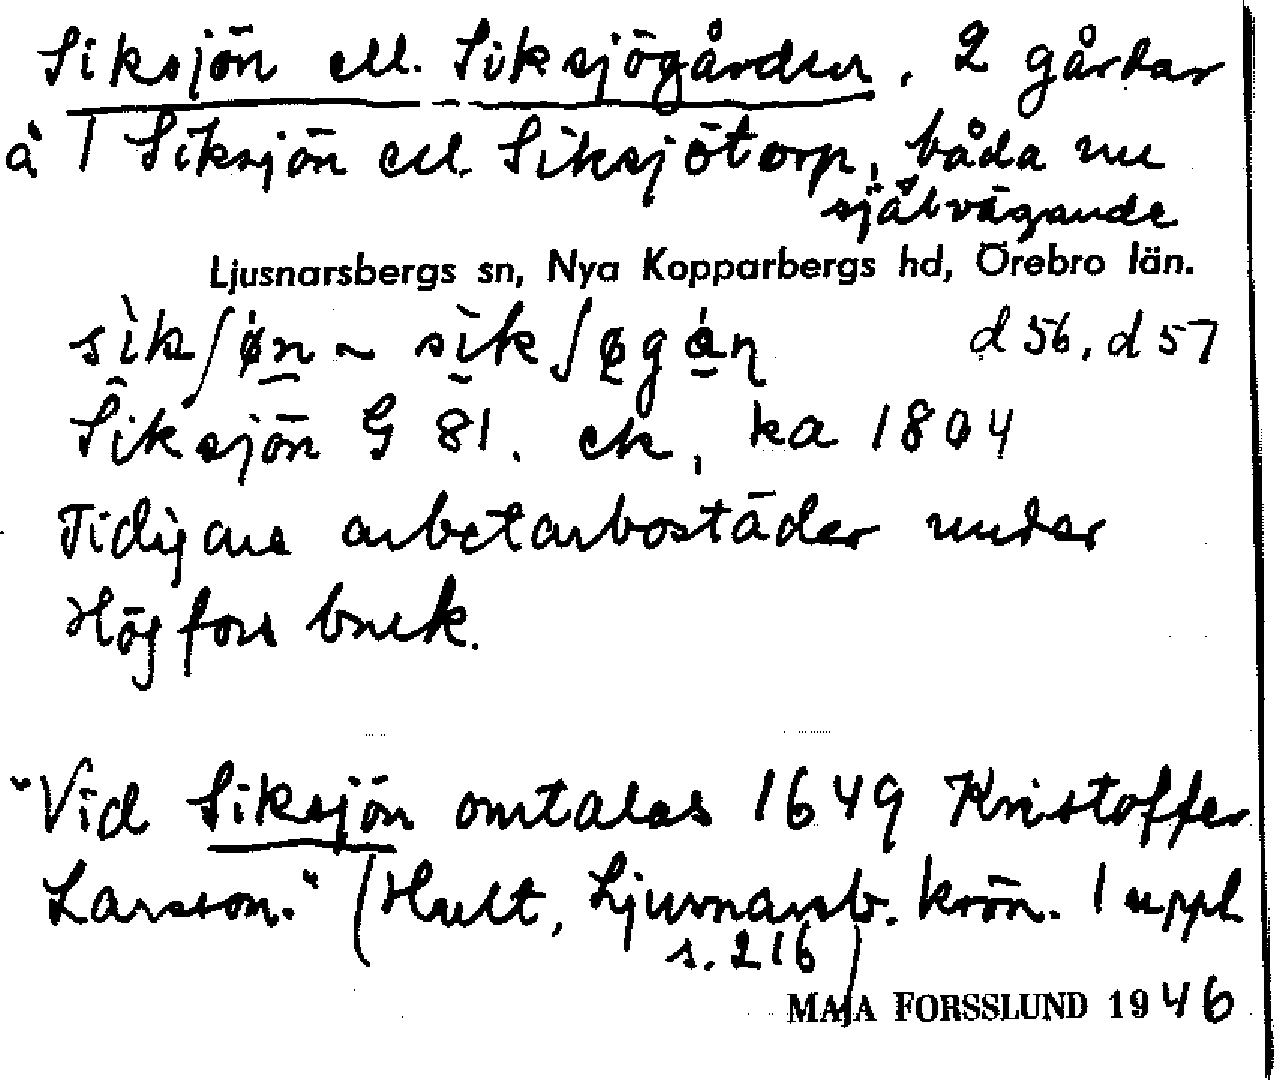 Siksjön ell. Siksjögården, 2 gårdar
å 1 Siksjön ell. Siksjötorp, båda nu
självägande
Ljusnarsbergs sn, Nya Kopparbergs hd, Örebro län.
d 56, d 57
Siksjön G 81. ek, ka 1804
Tidigare arbetarbostäder under
Högfors bruk.
"Vid Siksjön omtalas 1649 Kristoffer
Larsson." (Hult, Ljusnarsb. krön. 1 uppl
s. 216)
MAJA FORSSLUND 1946